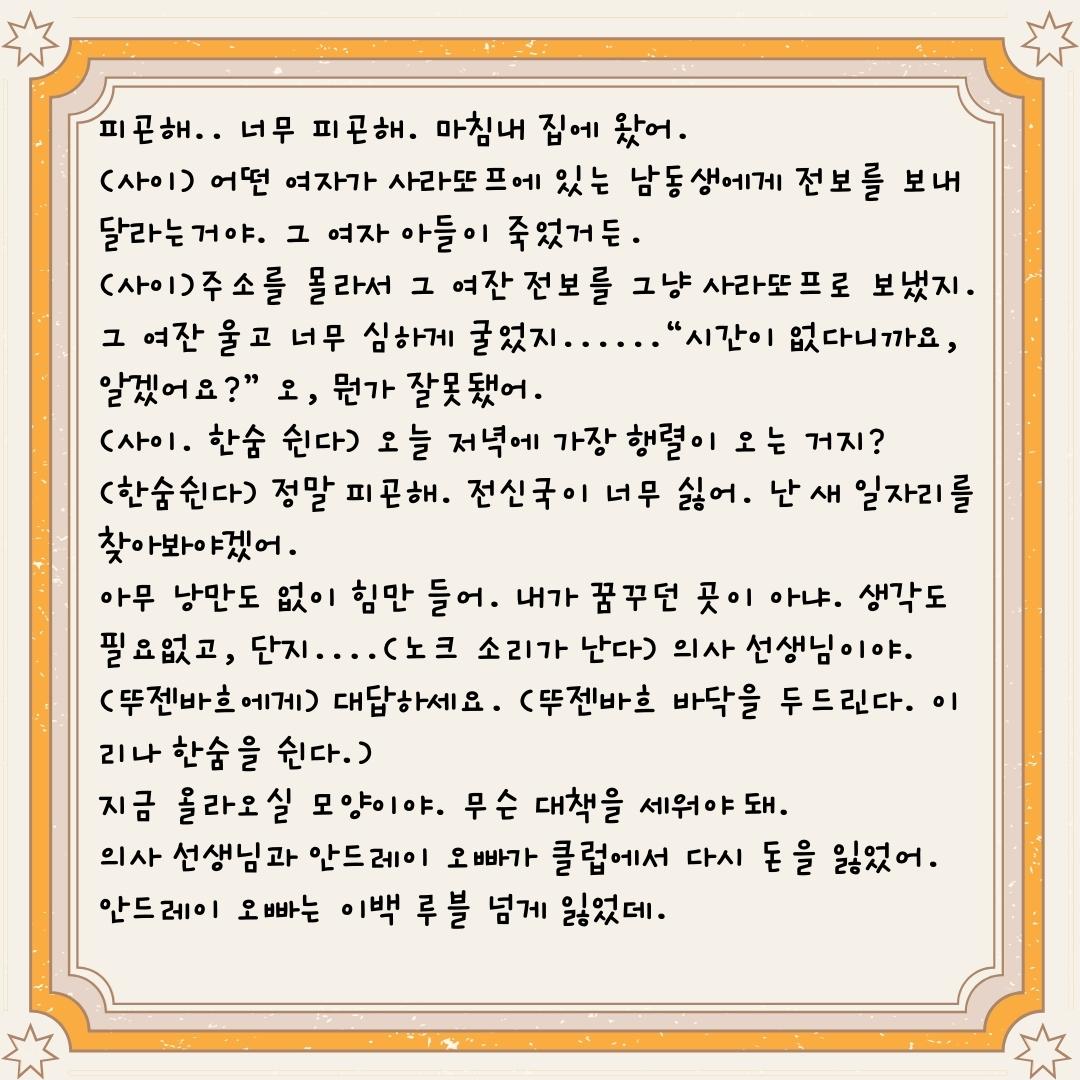 피곤해.. 너무 피곤해. 마침내 집에 왔어.
(사이) 어떤 여자가 사라또프에 있는 남동생에게 전보를 보내
달라는거야. 그 여자 아들이 죽었거든.
(사이)주소를 몰라서 그 여잔 전보를 그냥 사라또프로 보냈지.
그 여잔 울고 너무 심하게 굴었지......“시간이 없다니까요,
알겠어요?” 오, 뭔가 잘못됐어.
(사이. 한숨 쉰다) 오늘 저녁에 가장 행렬이 오는 거지?
(한숨쉰다) 정말 피곤해. 전신국이 너무 싫어. 난 새 일자리를
찾아봐야겠어.
아무 낭만도 없이 힘만 들어. 내가 꿈꾸던 곳이 아냐. 생각도
필요없고, 단지....(노크 소리가 난다) 의사 선생님이야.
(뚜젠바흐에게) 대답하세요. (뚜젠바흐 바닥을 두드린다. 이
리나 한숨을 쉰다.)
지금 올라오실 모양이야. 무슨 대책을 세워야 돼.
의사 선생님과 안드레이 오빠가 클럽에서 다시 돈을 잃었어.
안드레이 오빠는 이백 루블 넘게 잃었데.